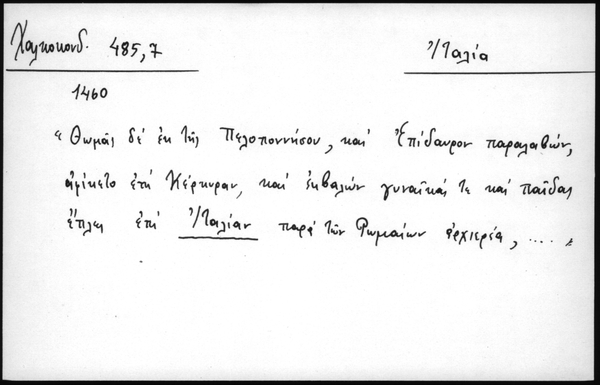 Χαλκοκονδ. 485,7 Ἰταλία
1460
"Θωμᾶς δέ ἐκ τῆς Πελοποννήσου, καί Ἐπίδαυρον παραλαβών,
ἀφίκετο ἐπί Κέρκυραν, καί ἐκβαλών γυναῖκάς τε καί παῖδας
ἔπλει ἐπί Ἰταλίαν παρά τῶν Ρωμαίων ἀρχιερέα, ..... "